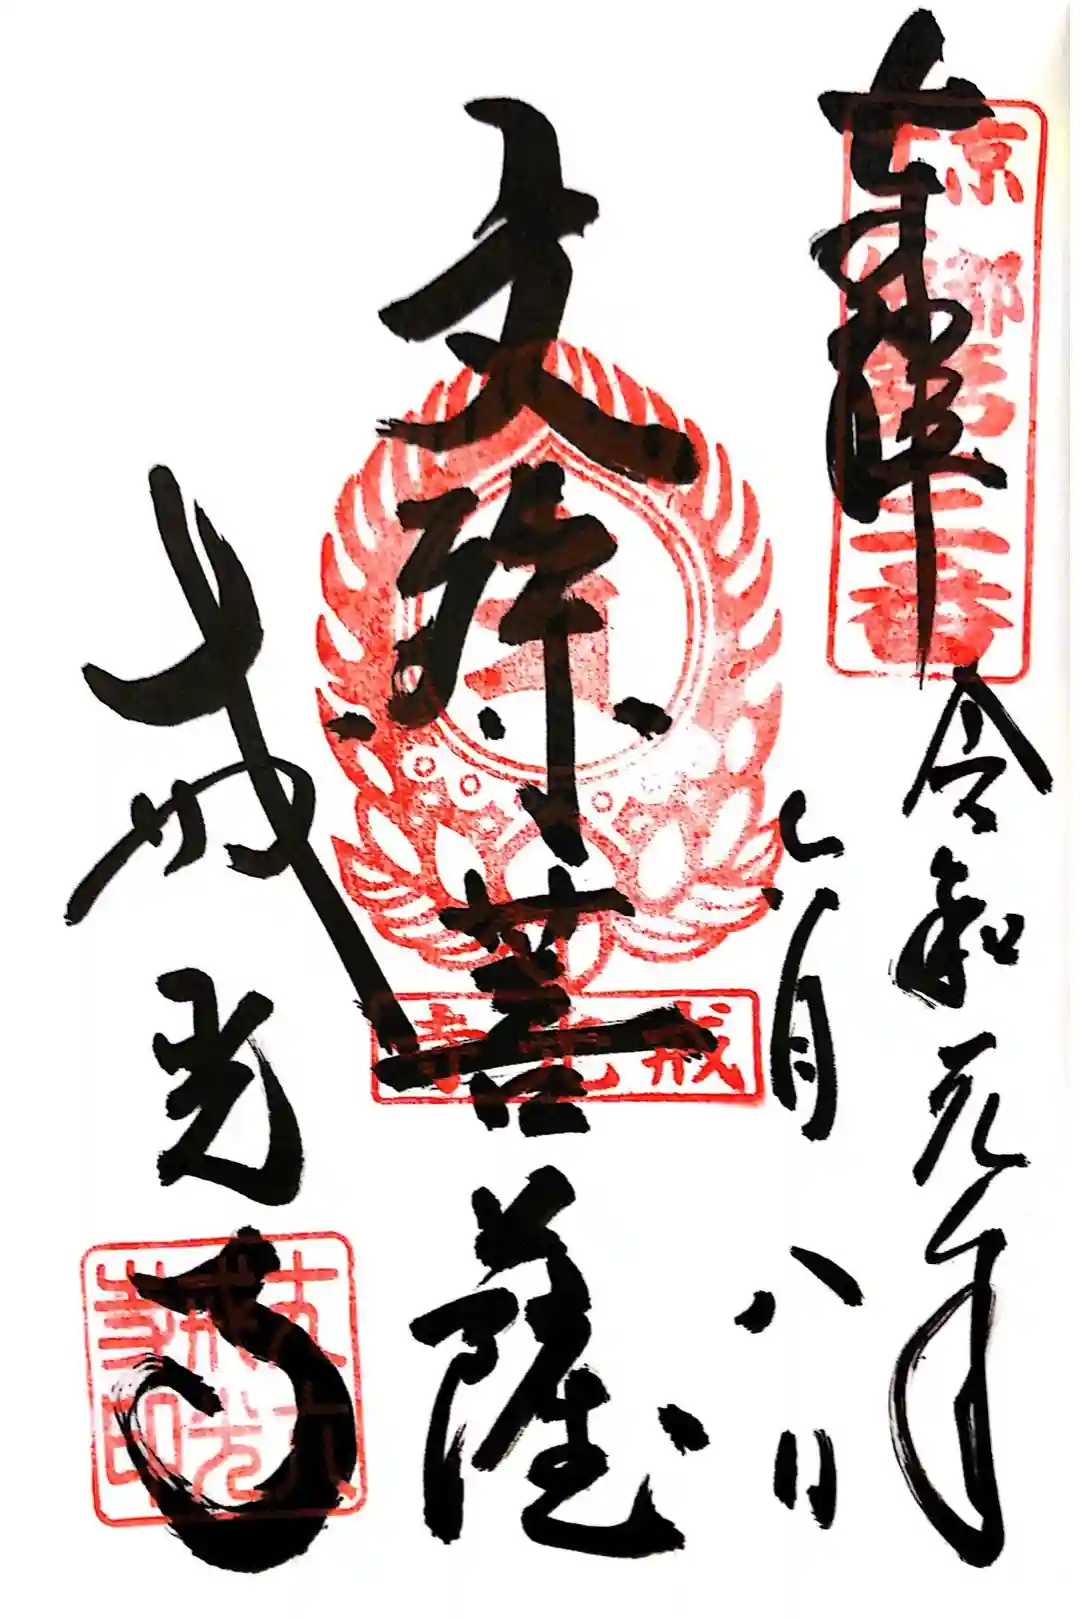 奉拝
京都
第三番
令和元年
七月八日
文殊菩薩
戒光寺
戒光寺
丈六戒光寺印